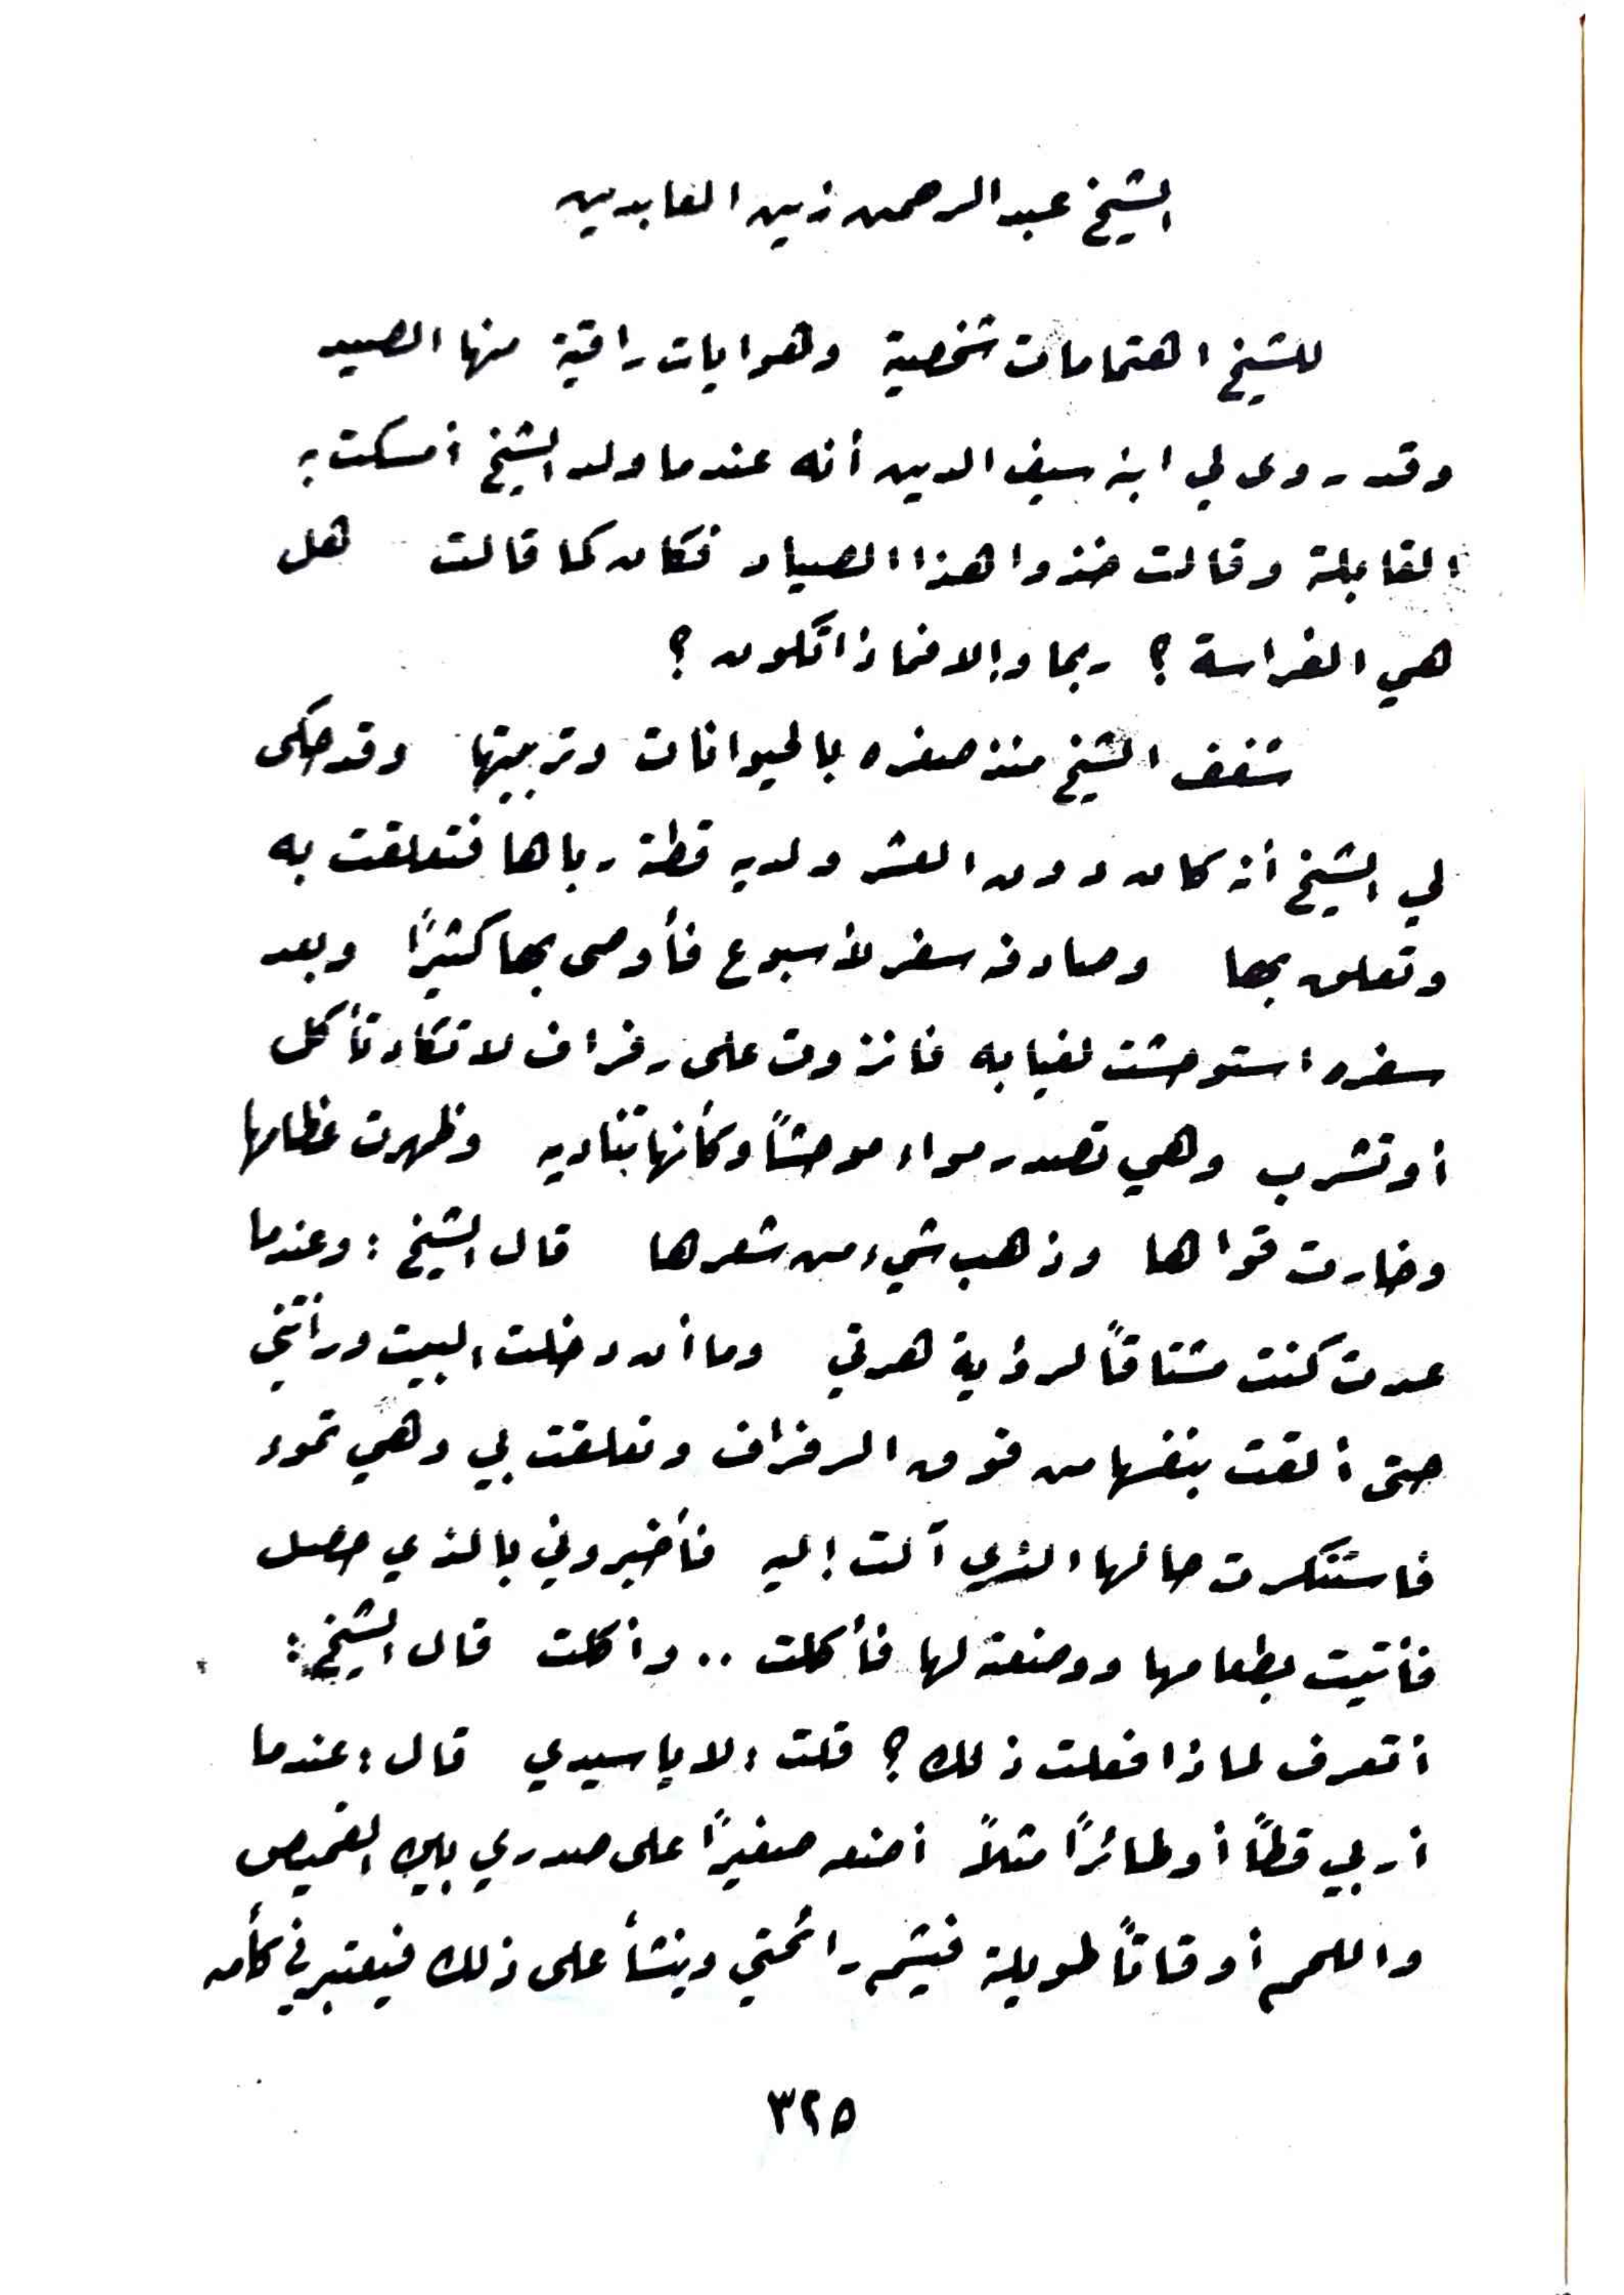 الشيخ عبد الرحمن زين العابدين
للشيخ اهتمامات شخصية وهوايات راقية منها الصيد
وقد روى لي ابنه سيف الدين أنه عندما ولد الشيخ أمسكت به
القابلة وقالت خذوا هذا الصياد فكان كما قالت هل
هي الفراسة ؟ ربما وإلا فماذا تكون ؟
شغف الشيخ منذ صغره بالحيوانات وتربيتها وقد حكى
لي الشيخ أنه كان دون العشر ولديه قطة رباها فتعلقت به
وتعلق بها وصادف سفر لأسبوع فأوصى بها كثيرًا وبعد
سفره استوحشت لغيابه فانزوت على رفراف لا تكاد تأكل
أو تشرب وهي تصدر مواء موحشًا وكأنها تناديه وظهرت عظامها
وخارت قواها وذهب شيء من شعرها قال الشيخ : وعندما
عدت كنت مشتاقًا لرؤية هرتي وما أن دخلت البيت ورأتني
حتى ألقت بنفسها من فوق الرفراف وتعلقت بي وهي تموء
فاستنكرت حالها الذي آلت إليه فأخبروني بالذي حصل
فأتيت بطعامها ووضعته لها فأكلت .. وأكلت قال الشيخ :
أتعرف لماذا فعلت ذلك ؟ قلت : لا يا سيدي قال : عندما
أربي قطًا أو طائرًا مثلاً أضعه صغيرًا على صدري بين القميص
واللحم أوقاتًا طويلة فيشم رائحتي وينشأ على ذلك فيعتبرني كأمه
٣٢٥